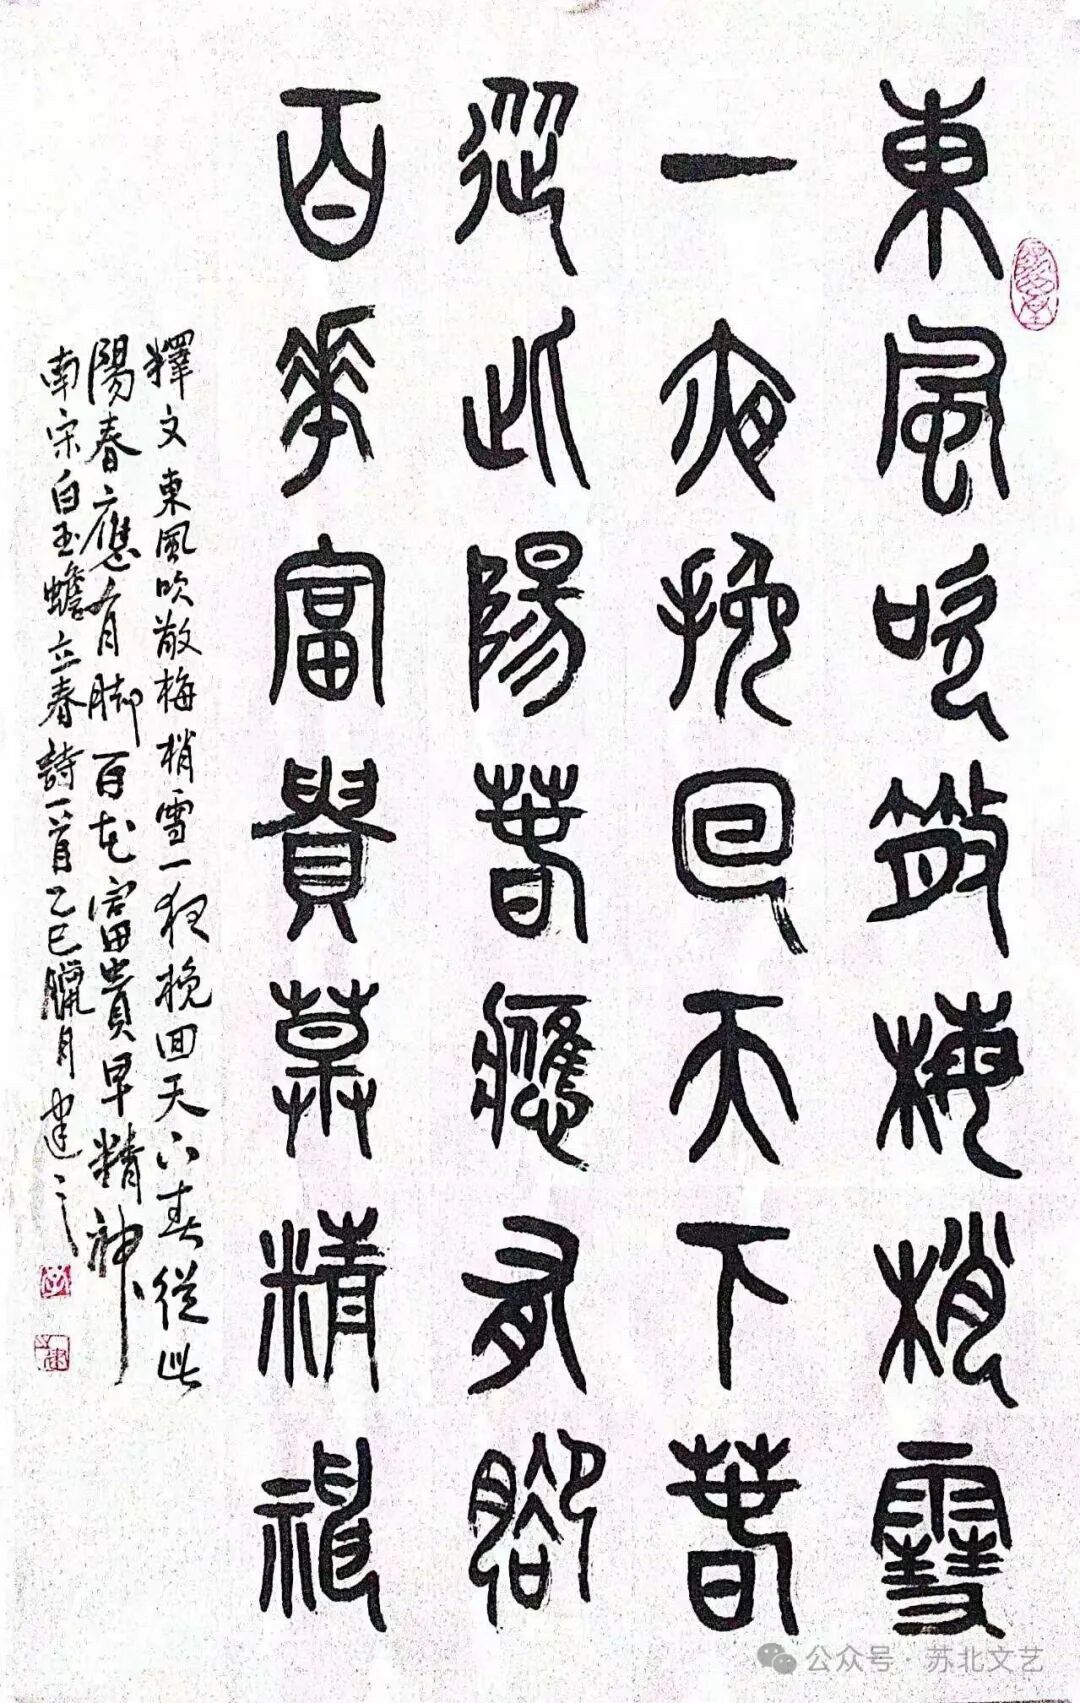 東風吹散梅梢雪
一夜挽回天下春
從此陽春應有腳
百花富貴草精神
釋文東風吹散梅梢雪一夜挽回天下春從此
陽春應有脚百花富貴早精神
南宋白玉蟾立春詩一首乙巳臘月建之
公众号·苏北文艺